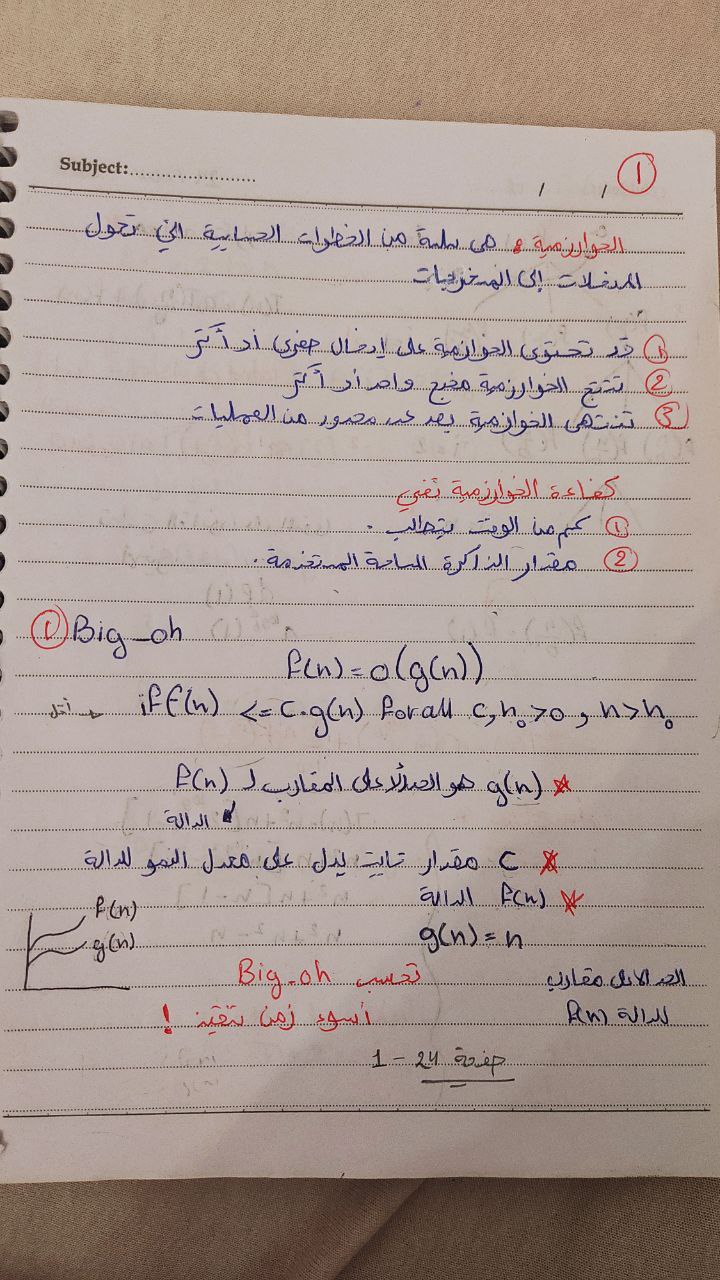 Subject:........................
/ / ①
الخوارزمية: هي سلسلة من الخطوات الحسابية التي تحول
المدخلات إلى المخرجات
① قد تحتوي الخوارزمية على إدخال صفري أو أكثر
② تنتج الخوارزمية مخرج واحد أو أكثر
③ تنتهي الخوارزمية بعد عدد محدود من العمليات
كفاءة الخوارزمية تعني
① كم من الوقت يتطلب.
② مقدار الذاكرة المساحة المستخدمة.
① Big-oh
f(n)=o(g(n))
if f(n) <= c.g(n) for all c, n₀ >0, n>n₀ أقل
* g(n) هو الحد الأعلى المقارب لـ f(n)
الدالة
* C مقدار ثابت يدل على معدل النمو للدالة
* f(n) الدالة
g(n)=n
f(n)
g(n)
الحد الأعلى مقارب
للدالة f(n)
تحسب Big-oh
أسوء زمن تنفيذ!
صفحة 24 - 1